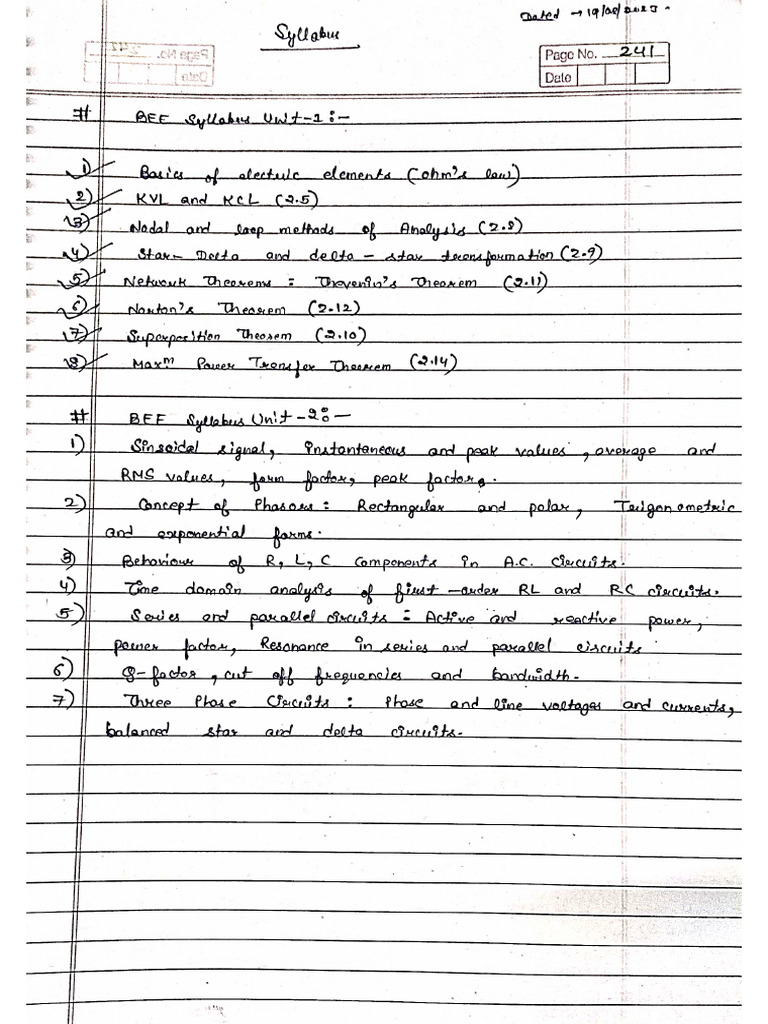 Dated → 19/08/2023.
Syllabus
Page No. 241
Date
# BEE Syllabus Unit-1:-
1) Basics of electric elements (ohm's law)
2) KVL and KCL (2.5)
3) Nodal and loop methods of Analysis (2.8)
4) Star-Delta and delta-star transformation (2.9)
5) Network Theorems : Thevenin's Theorem (2.11)
6) Norton's Theorem (2.12)
7) Superposition Theorem (2.10)
8) Maxm Power Transfer Theorem (2.14)
# BEE Syllabus Unit-2:-
1) Sinsoidal signal, instantaneous and peak values, average and
RMS values, form factor, peak factor.
2) Concept of Phasors : Rectangular and polar, Trigonometric
and exponential forms.
3) Behaviour of R, L, C Components in A.C. Circuits.
4) Time domain analysis of first-order RL and RC circuits.
5) Series and parallel circuits : Active and reactive power,
power factor, Resonance in series and parallel circuits
6) Q-factor, cut off frequencies and bandwidth.
7) Three Phase Circuits : Phase and line voltages and currents,
balanced star and delta circuits.